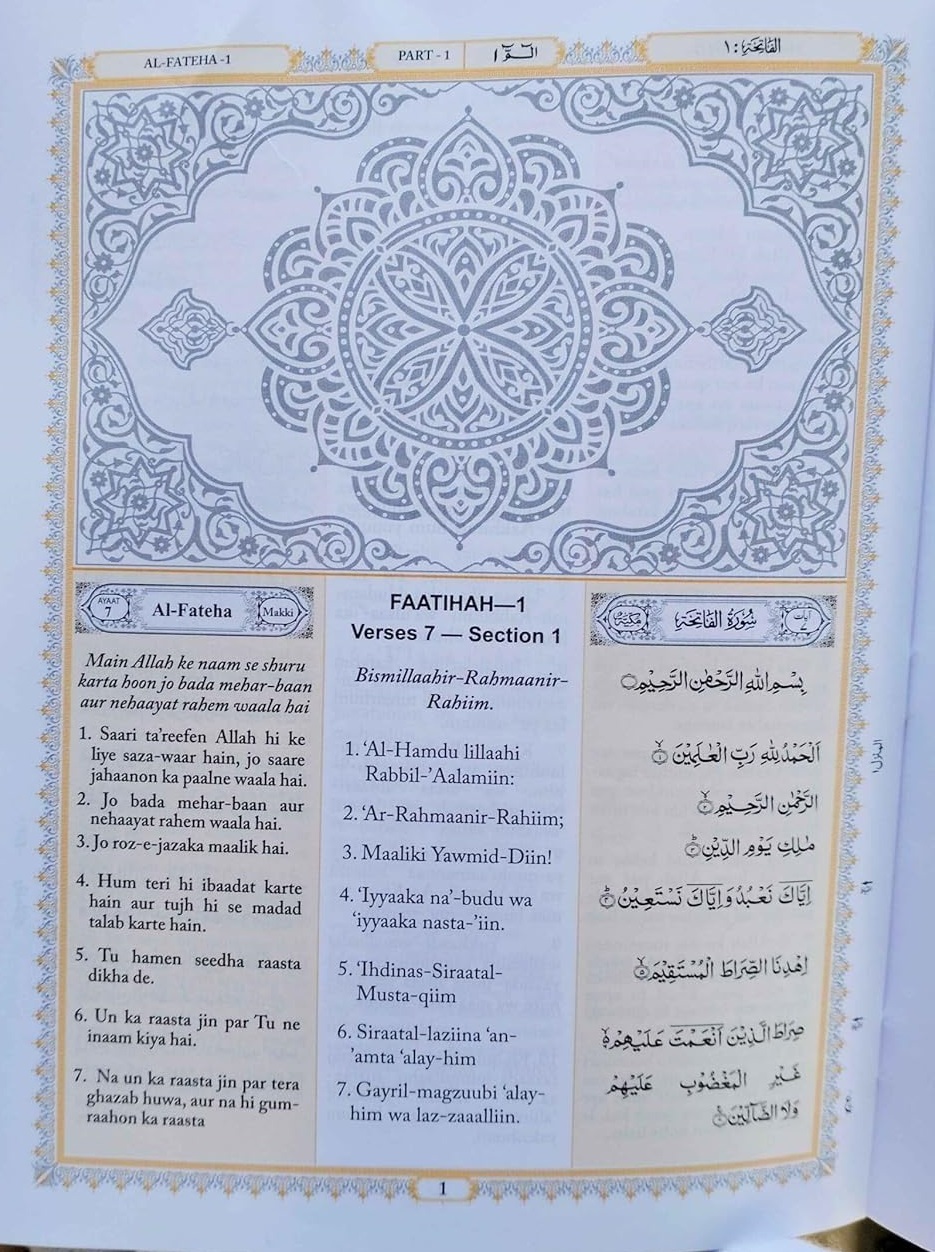 AL-FATEHA -1
PART - 1
الٓمّٓ ١
الفَاتِحَة : ١
AYAAT
7
Al-Fateha
Makki
Main Allah ke naam se shuru
karta hoon jo bada mehar-baan
aur nehaayat rahem waala hai
1. Saari ta'reefen Allah hi ke
liye saza-waar hain, jo saare
jahaanon ka paalne waala hai.
2. Jo bada mehar-baan aur
nehaayat rahem waala hai.
3. Jo roz-e-jazaka maalik hai.
4. Hum teri hi ibaadat karte
hain aur tujh hi se madad
talab karte hain.
5. Tu hamen seedha raasta
dikha de.
6. Un ka raasta jin par Tu ne
inaam kiya hai.
7. Na un ka raasta jin par tera
ghazab huwa, aur na hi gum-
raahon ka raasta
FAATIHAH—1
Verses 7 — Section 1
Bismillaahir-Rahmaanir-
Rahiim.
1. ‘Al-Hamdu lillaahi
Rabbil-’Aalamiin:
2. ‘Ar-Rahmaanir-Rahiim;
3. Maaliki Yawmid-Diin!
4. ‘Iyyaaka na’-budu wa
‘iyyaaka nasta-’iin.
5. ‘Ihdinas-Siraatal-
Musta-qiim
6. Siraatal-laziina ‘an-
’amta ‘alay-him
7. Gayril-magzuubi ‘alay-
him wa laz-zaaalliin.
آيات
٧
سُورَةُ الفَاتِحَة
مَكِّيَّة
بِسْمِ اللّٰهِ الرَّحْمٰنِ الرَّحِيْمِ
اَلْحَمْدُ لِلّٰهِ رَبِّ الْعٰلَمِيْنَ ۙ﴿۱﴾
الرَّحْمٰنِ الرَّحِيْمِ ۙ﴿۲﴾
مٰلِكِ يَوْمِ الدِّيْنِ ؕ﴿۳﴾
اِيَّاكَ نَعْبُدُ وَاِيَّاكَ نَسْتَعِيْنُ ؕ﴿۴﴾
اِهْدِنَا الصِّرَاطَ الْمُسْتَقِيْمَ ۙ﴿۵﴾
صِرَاطَ الَّذِيْنَ اَنْعَمْتَ عَلَيْهِمْ ۙ
غَيْرِ الْمَغْضُوْبِ عَلَيْهِمْ
وَلَا الضَّآلِّيْنَ
1